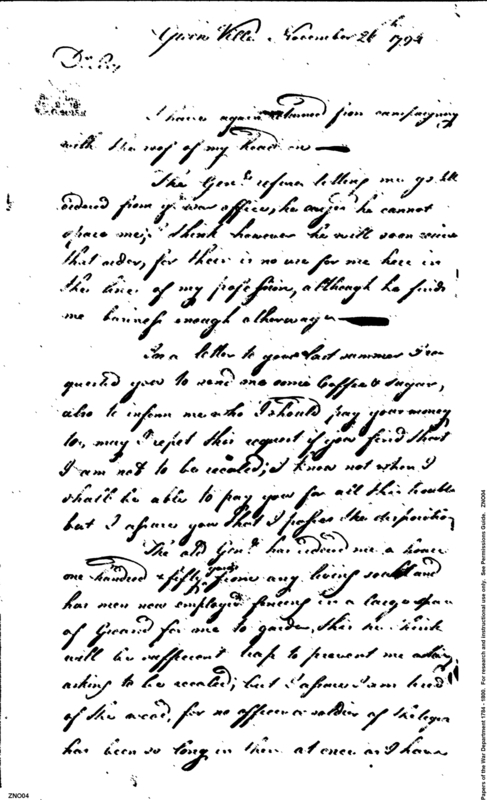 Green Ville November 26th 1794
Dr Sir
I have again returned from campaigning
with the roof of my head on
The Genl. refuses letting me go till
ordered from ye war office, he says he cannot
spare me; I think however he will soon receive
that order, for there is no use for me here in
the line of my profession, although he finds
me business enough otherways
In a letter to you last summer I re
quested you to send me some Coffee & sugar,
also to inform me who I should pay your money
to, may I repet this request if you find that
I am not to be recaled; I know not when I
shall be able to pay you for all this trouble
but I assure you that I possess the disposition
The old Genl. has ordered me a house
one hundred & fifty yards from any living soul and
has men now employed fencing in a large span
of Ground for me to garden, this he thinks
will be sufficient to prevent me
asking to be recaled; but I assure I am tired
of the wood, for no officer or soldier of the legion
has been so long in them at once as I have
ZNO04
Papers of the War Department 1784 - 1800. For research and instructional use only. See Permissions Guide. ZNO04